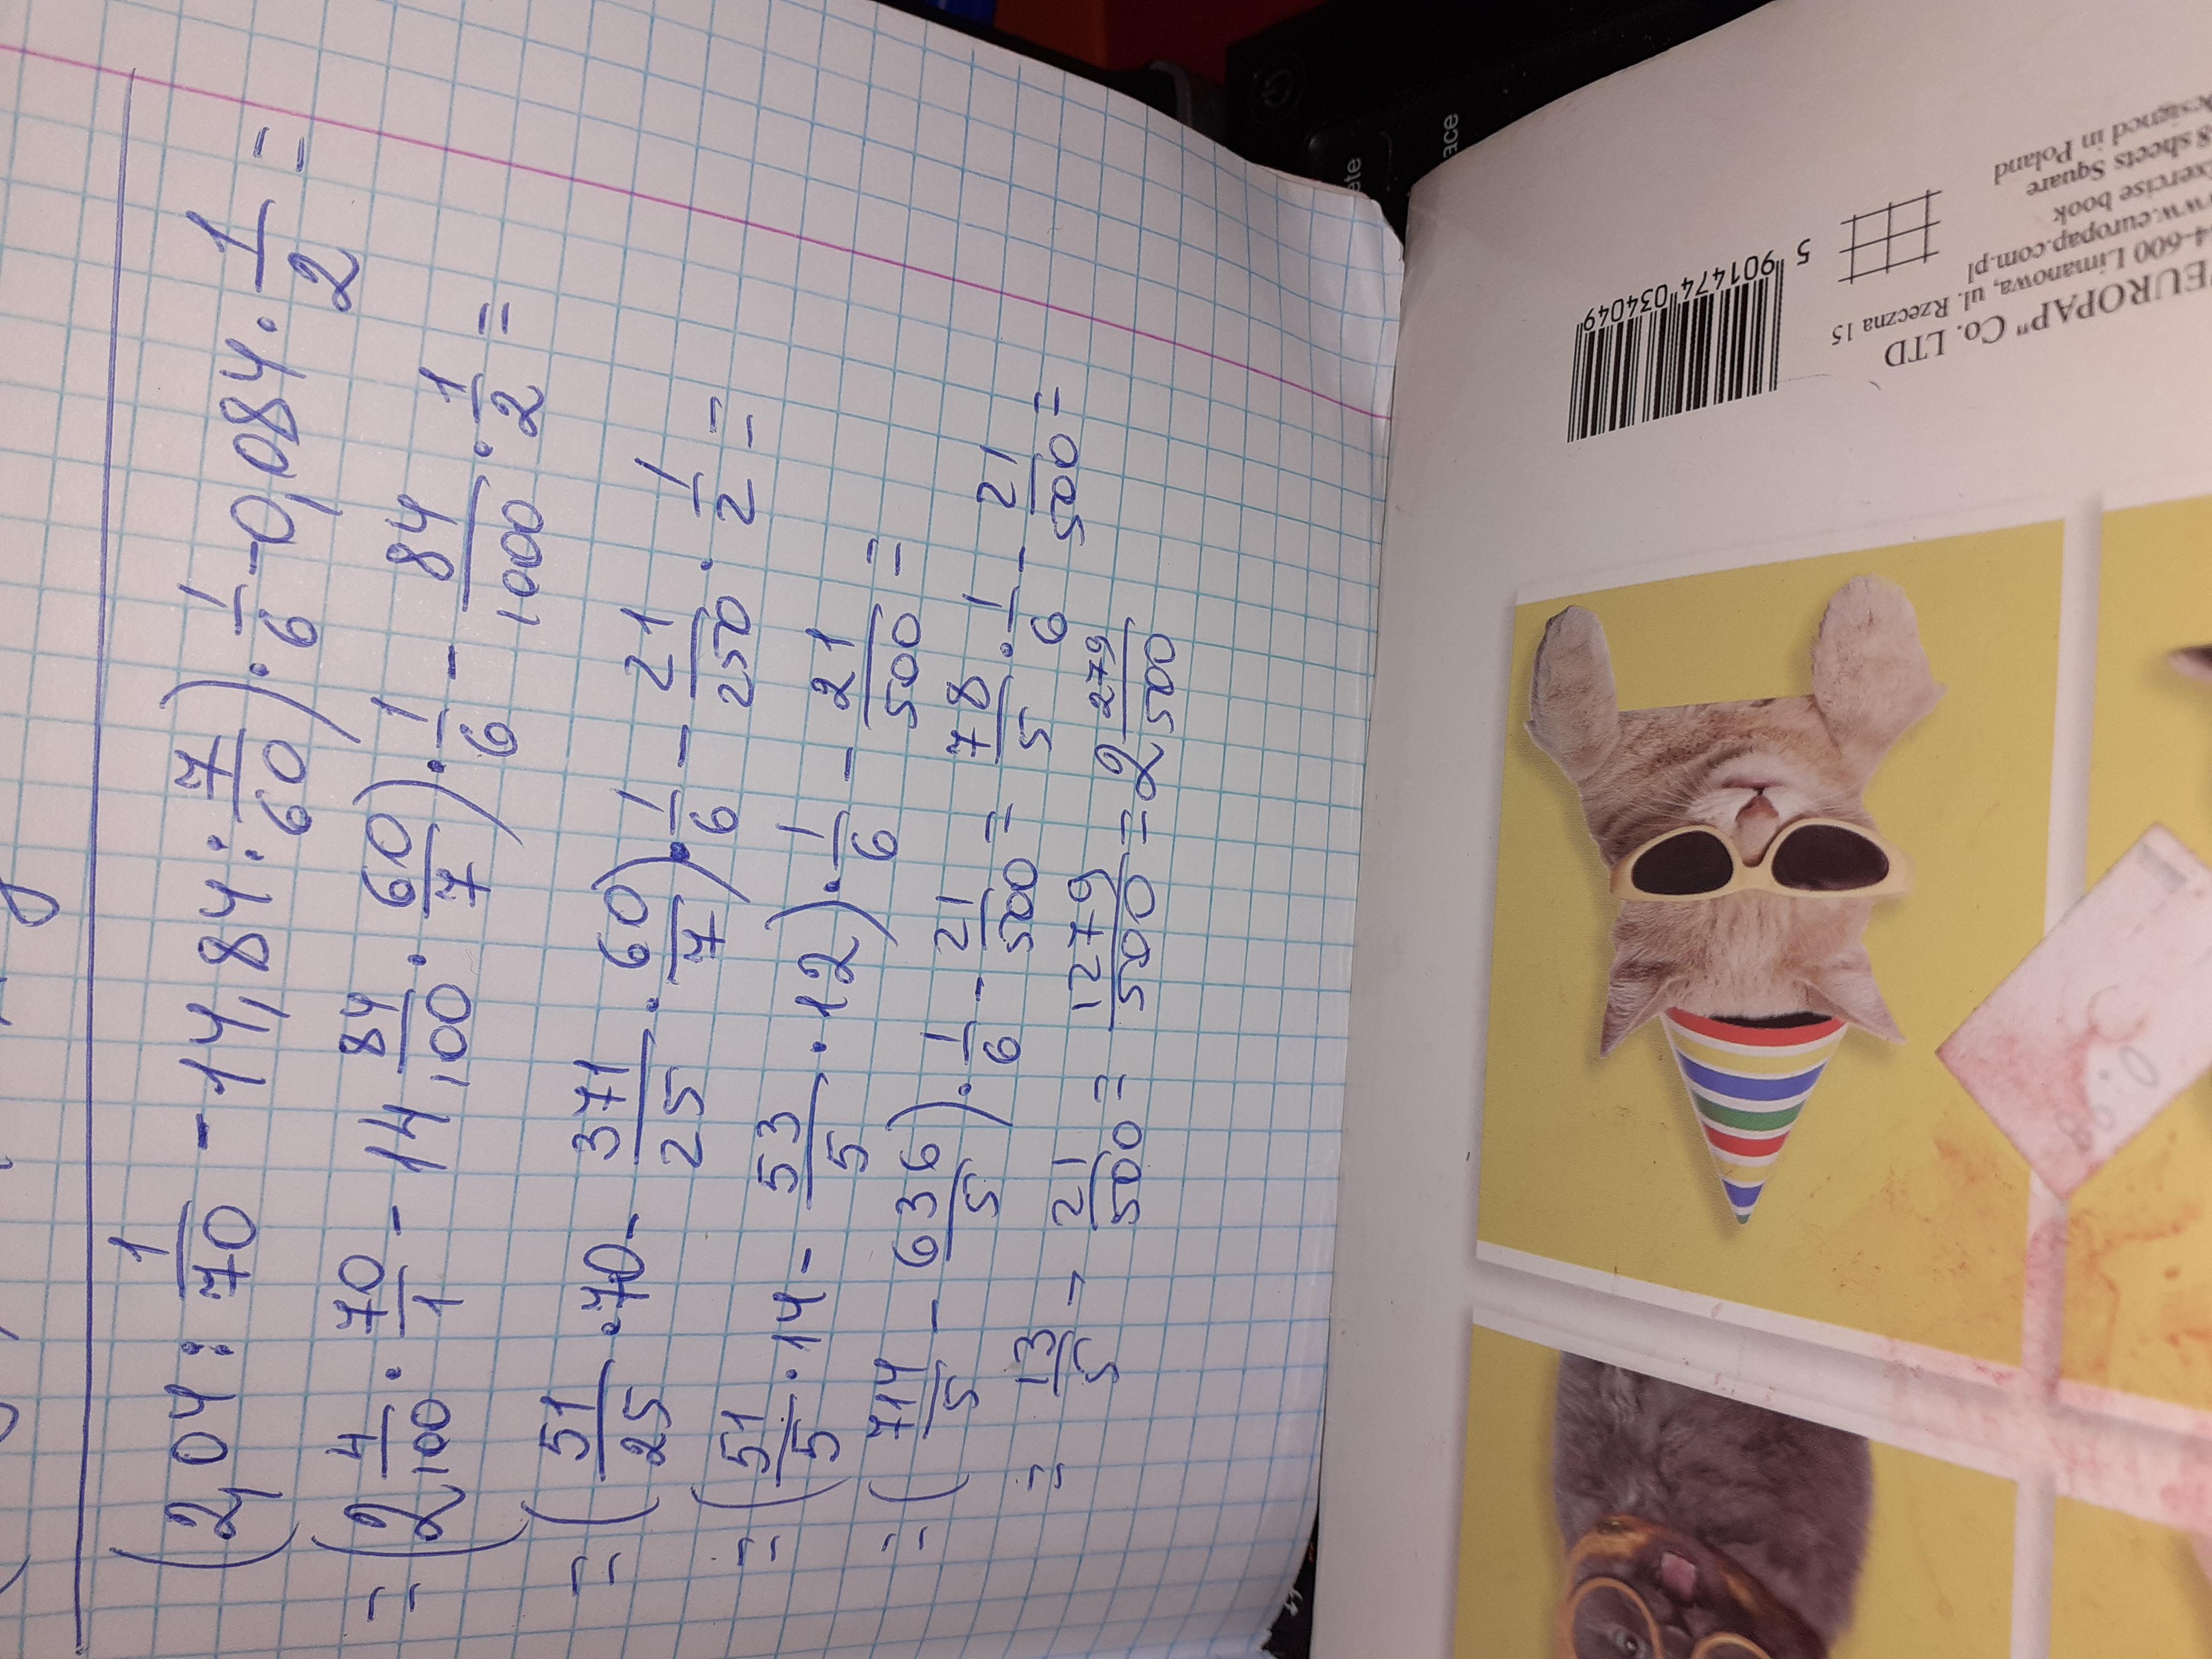 (2,04 : 1/70 - 14,84 : 7/60) · 1/6 - 0,084 · 1/2 =
= (2 4/100 · 70/1 - 14 84/100 · 60/7) · 1/6 - 84/1000 · 1/2 =
= (51/25 · 70 - 371/25 · 60/7) · 1/6 - 21/250 · 1/2 =
= (51/5 · 14 - 53/5 · 12) · 1/6 - 21/500 =
= (714/5 - 636/5) · 1/6 - 21/500 = 78/5 · 1/6 - 21/500 =
= 13/5 - 21/500 = 1279/500 = 2 279/500
ete
ace
"EUROPAP" Co. LTD
4-600 Limanowa, ul. Rzeczna 15
www.europap.com.pl
Exercise book
8 sheets Square
Designed in Poland
5 901474 034049